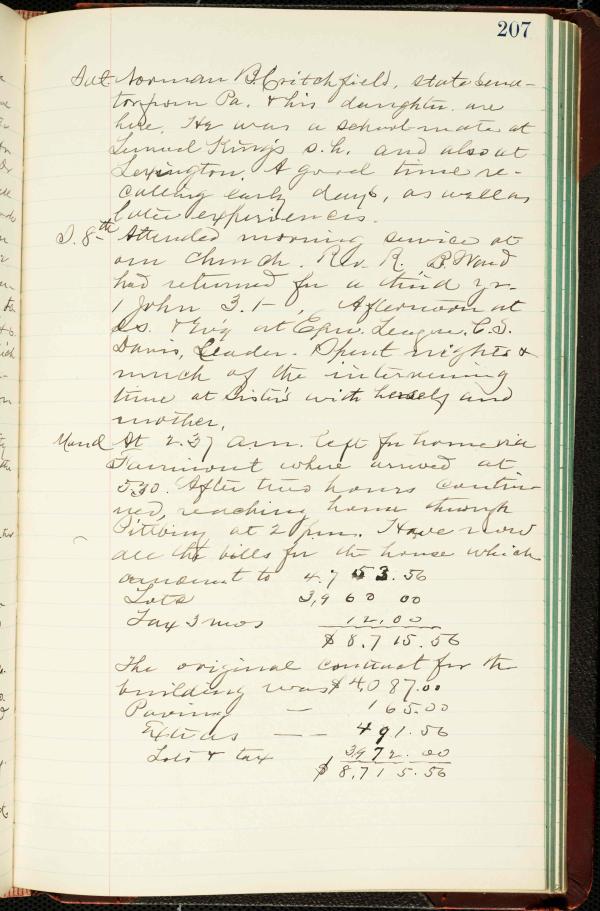 207
Sat Norman B. Critchfield, state sena-
tor from Pa. & his daughter are
here. He was a school-mate at
Lemuel King's s.h. and also at
Lexington. A good time re-
calling early days, as well as
later experiences.
S. 8-th Attended morning service at
our church. Rev. R. B. Ward
had returned for a third yr.
1 John 3.1-, Afternoon at
S.s. & Ev'g at Epw. League. C.S.
Davis, Leader. Spent nights &
much of the intervening
time at Sister's with herself and
mother.
Mond At 2.37 a.m. left for home via
Fairmont where arrived at
5.30. After two hours contin-
ued, reaching home through
Pittburg at 2 p.m. Have now
all the bills for the house which
amount to 4.753.56
Lots 3,960 00
Tax 3 mos 12.00
$8,715.56
The original contract for the
building was $4,087.00
Paving — 165.00
Extras — — 491.56
Lots & tax 3972.00
$8,715.56